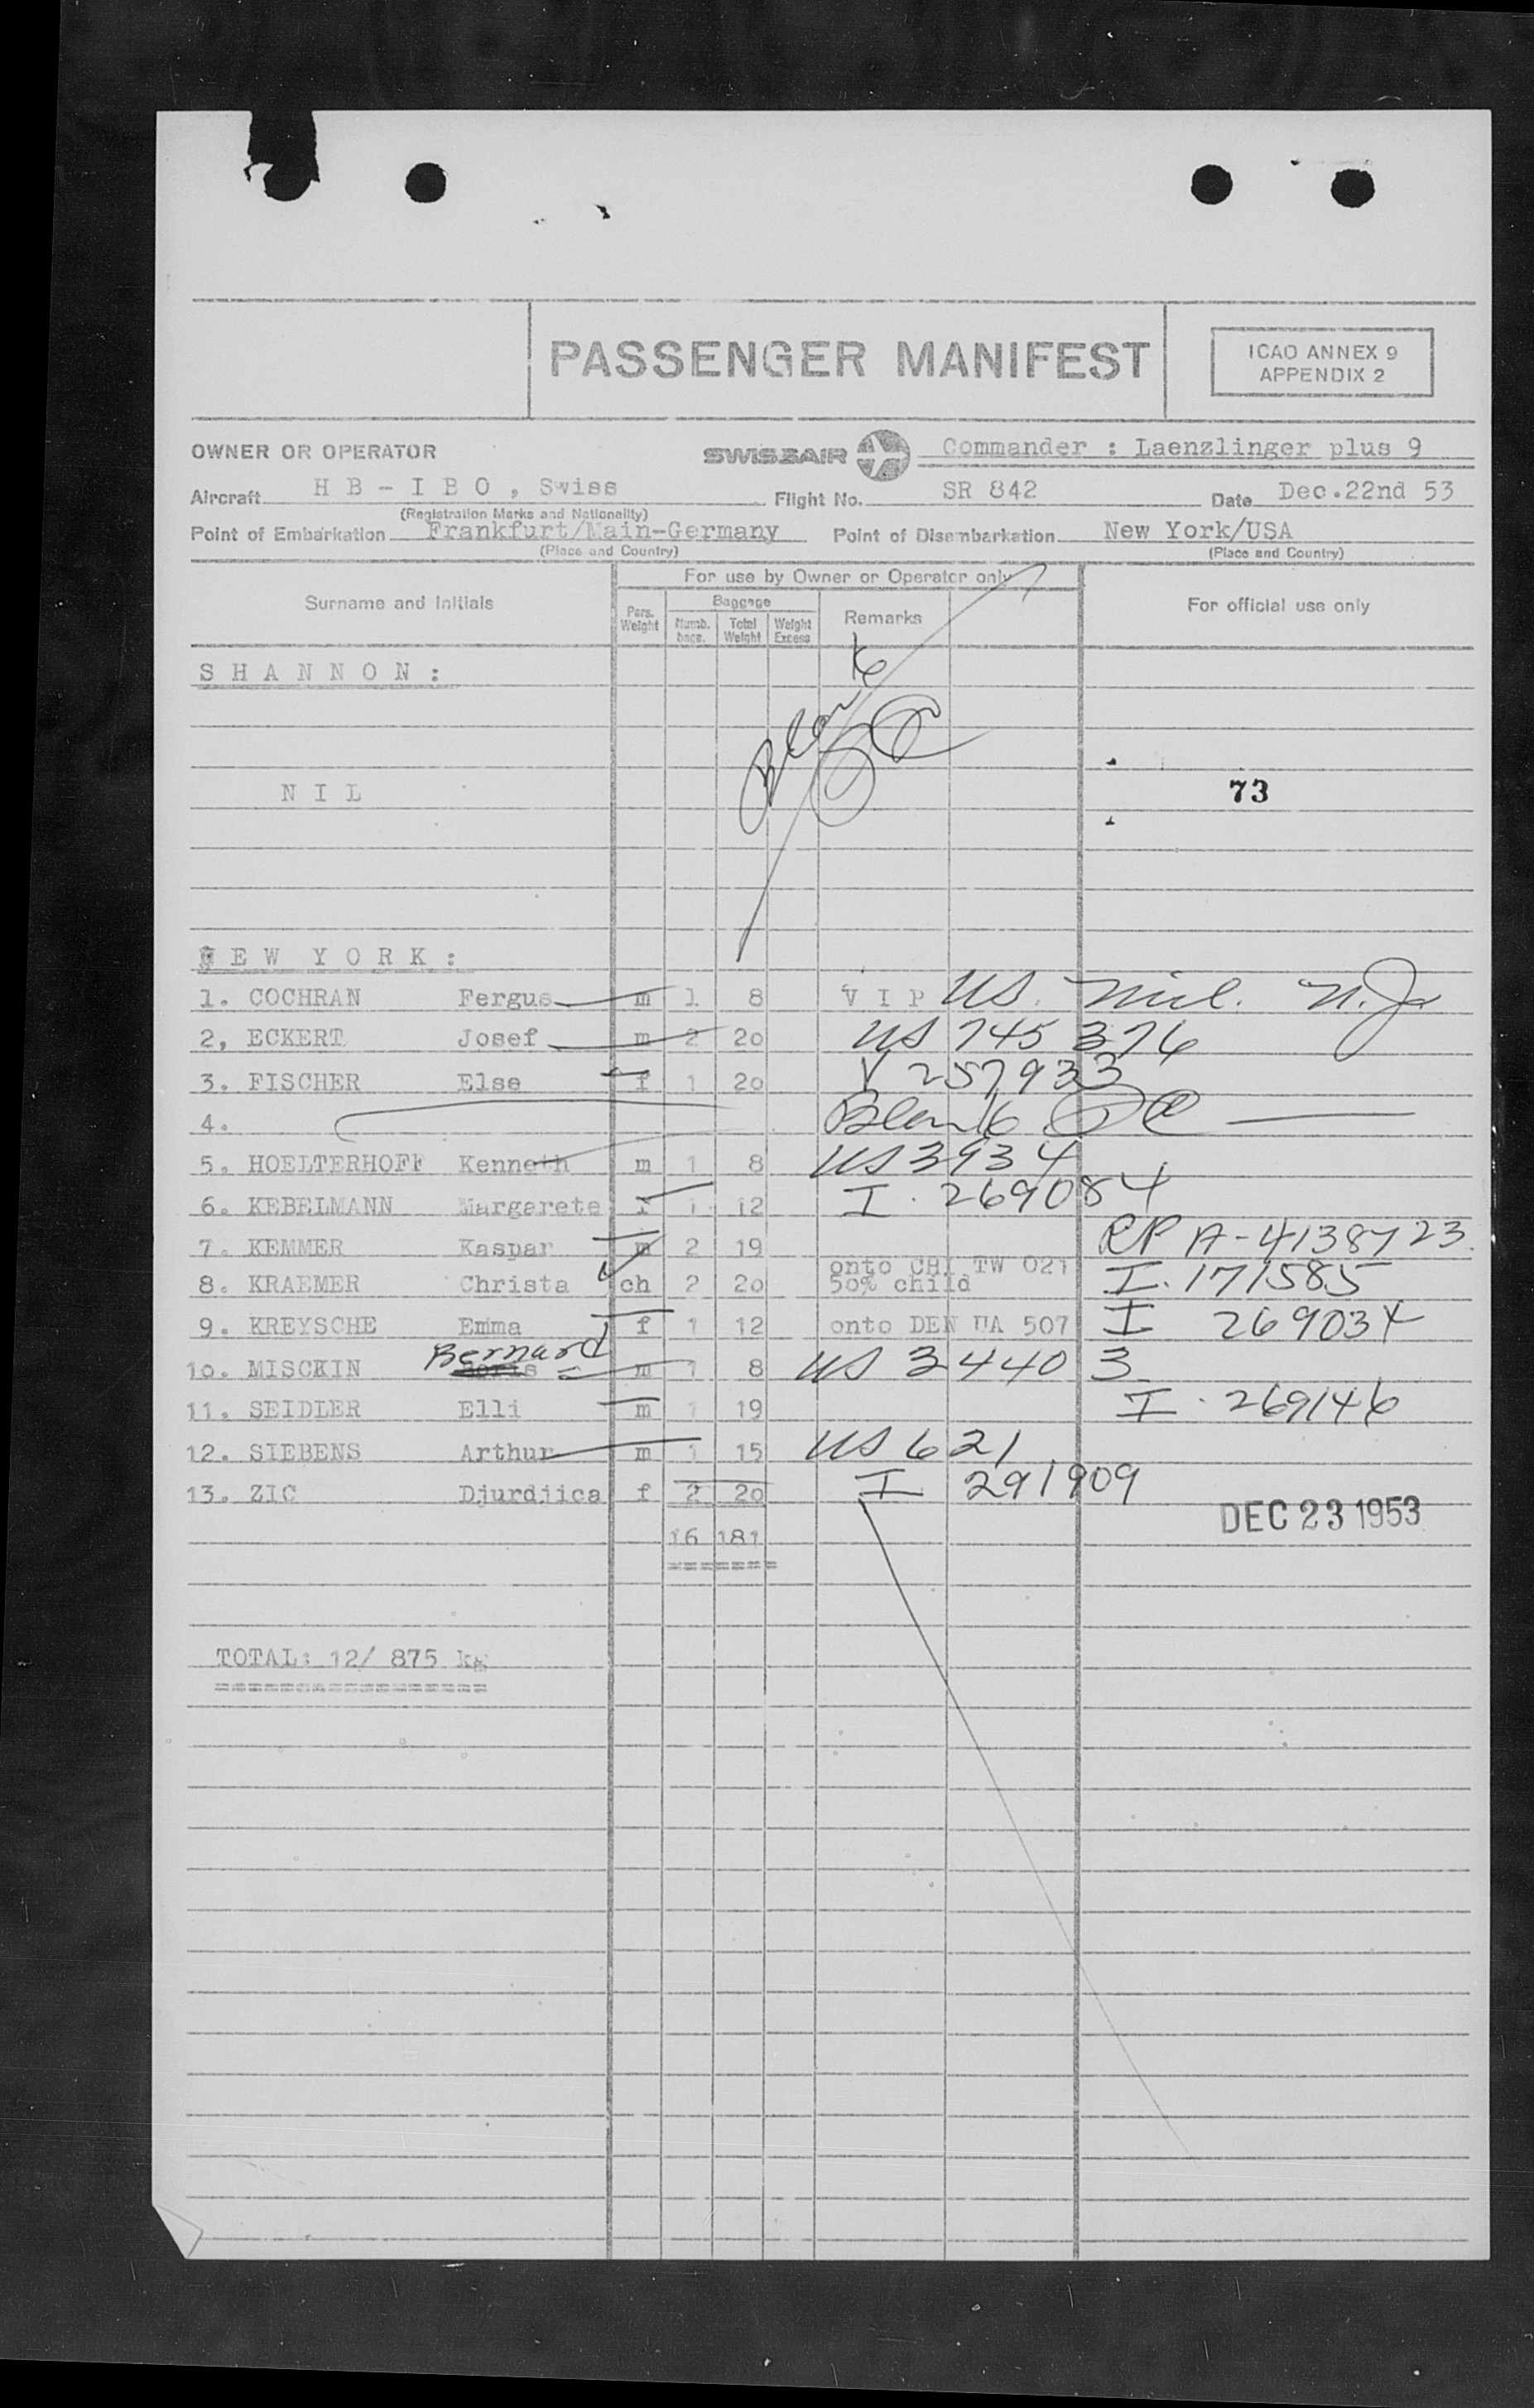 PASSENGER MANIFEST
ICAO ANNEX 9
APPENDIX 2
OWNER OR OPERATOR SWISSAIR Commander : Laenzlinger plus 9
Aircraft H B - I B O , Swiss Flight No. SR 842 Date Dec.22nd 53
(Registration Marks and Nationality)
Point of Embarkation Frankfurt/Main-Germany Point of Disembarkation New York/USA
(Place and Country) (Place and Country)
For use by Owner or Operator only
Surname and Initials Pers. Weight Baggage Numb. bags. Total Weight Weight Excess Remarks For official use only
S H A N N O N :
Blank
N I L 73
N E W Y O R K :
1. COCHRAN Fergus m 1 8 V I P US. Mil. N.J
2, ECKERT Josef m 2 20 US 745 376
3. FISCHER Else f 1 20 V 257933
4. Blank
5. HOELTERHOFF Kenneth m 1 8 US 3934
6. KEBELMANN Margarete f 1 12 I. 269084
7. KEMMER Kaspar m 2 19 RP A-4138723
8. KRAEMER Christa ch 2 20 onto CHI TW 021 50% child I. 171585
9. KREYSCHE Emma f 1 12 onto DEN UA 507 I 269034
Bernard
10. MISCKIN Boris m 1 8 US 34403
11. SEIDLER Elli m 1 19 I. 269146
12. SIEBENS Arthur m 1 15 US 621
13. ZIC Djurdjica f 2 20 I 291909
DEC 23 1953
16 181
=======
TOTAL: 12/ 875 kg
=================